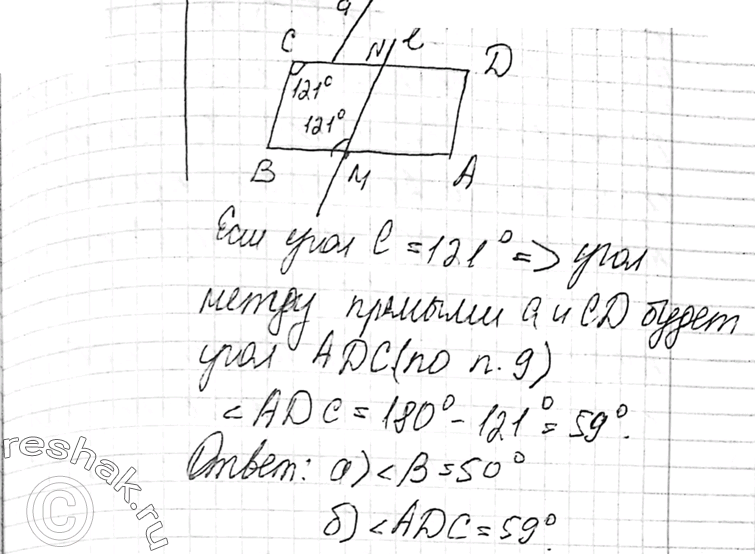 a
C N l D
121°
121°
B M A
Если угол C = 121° => угол
между прямыми a и CD будет
угол ADC (по п. 9)
< ADC = 180° - 121° = 59°.
Ответ: а) < B = 50°
б) < ADC = 59°.
reshak.ru
©